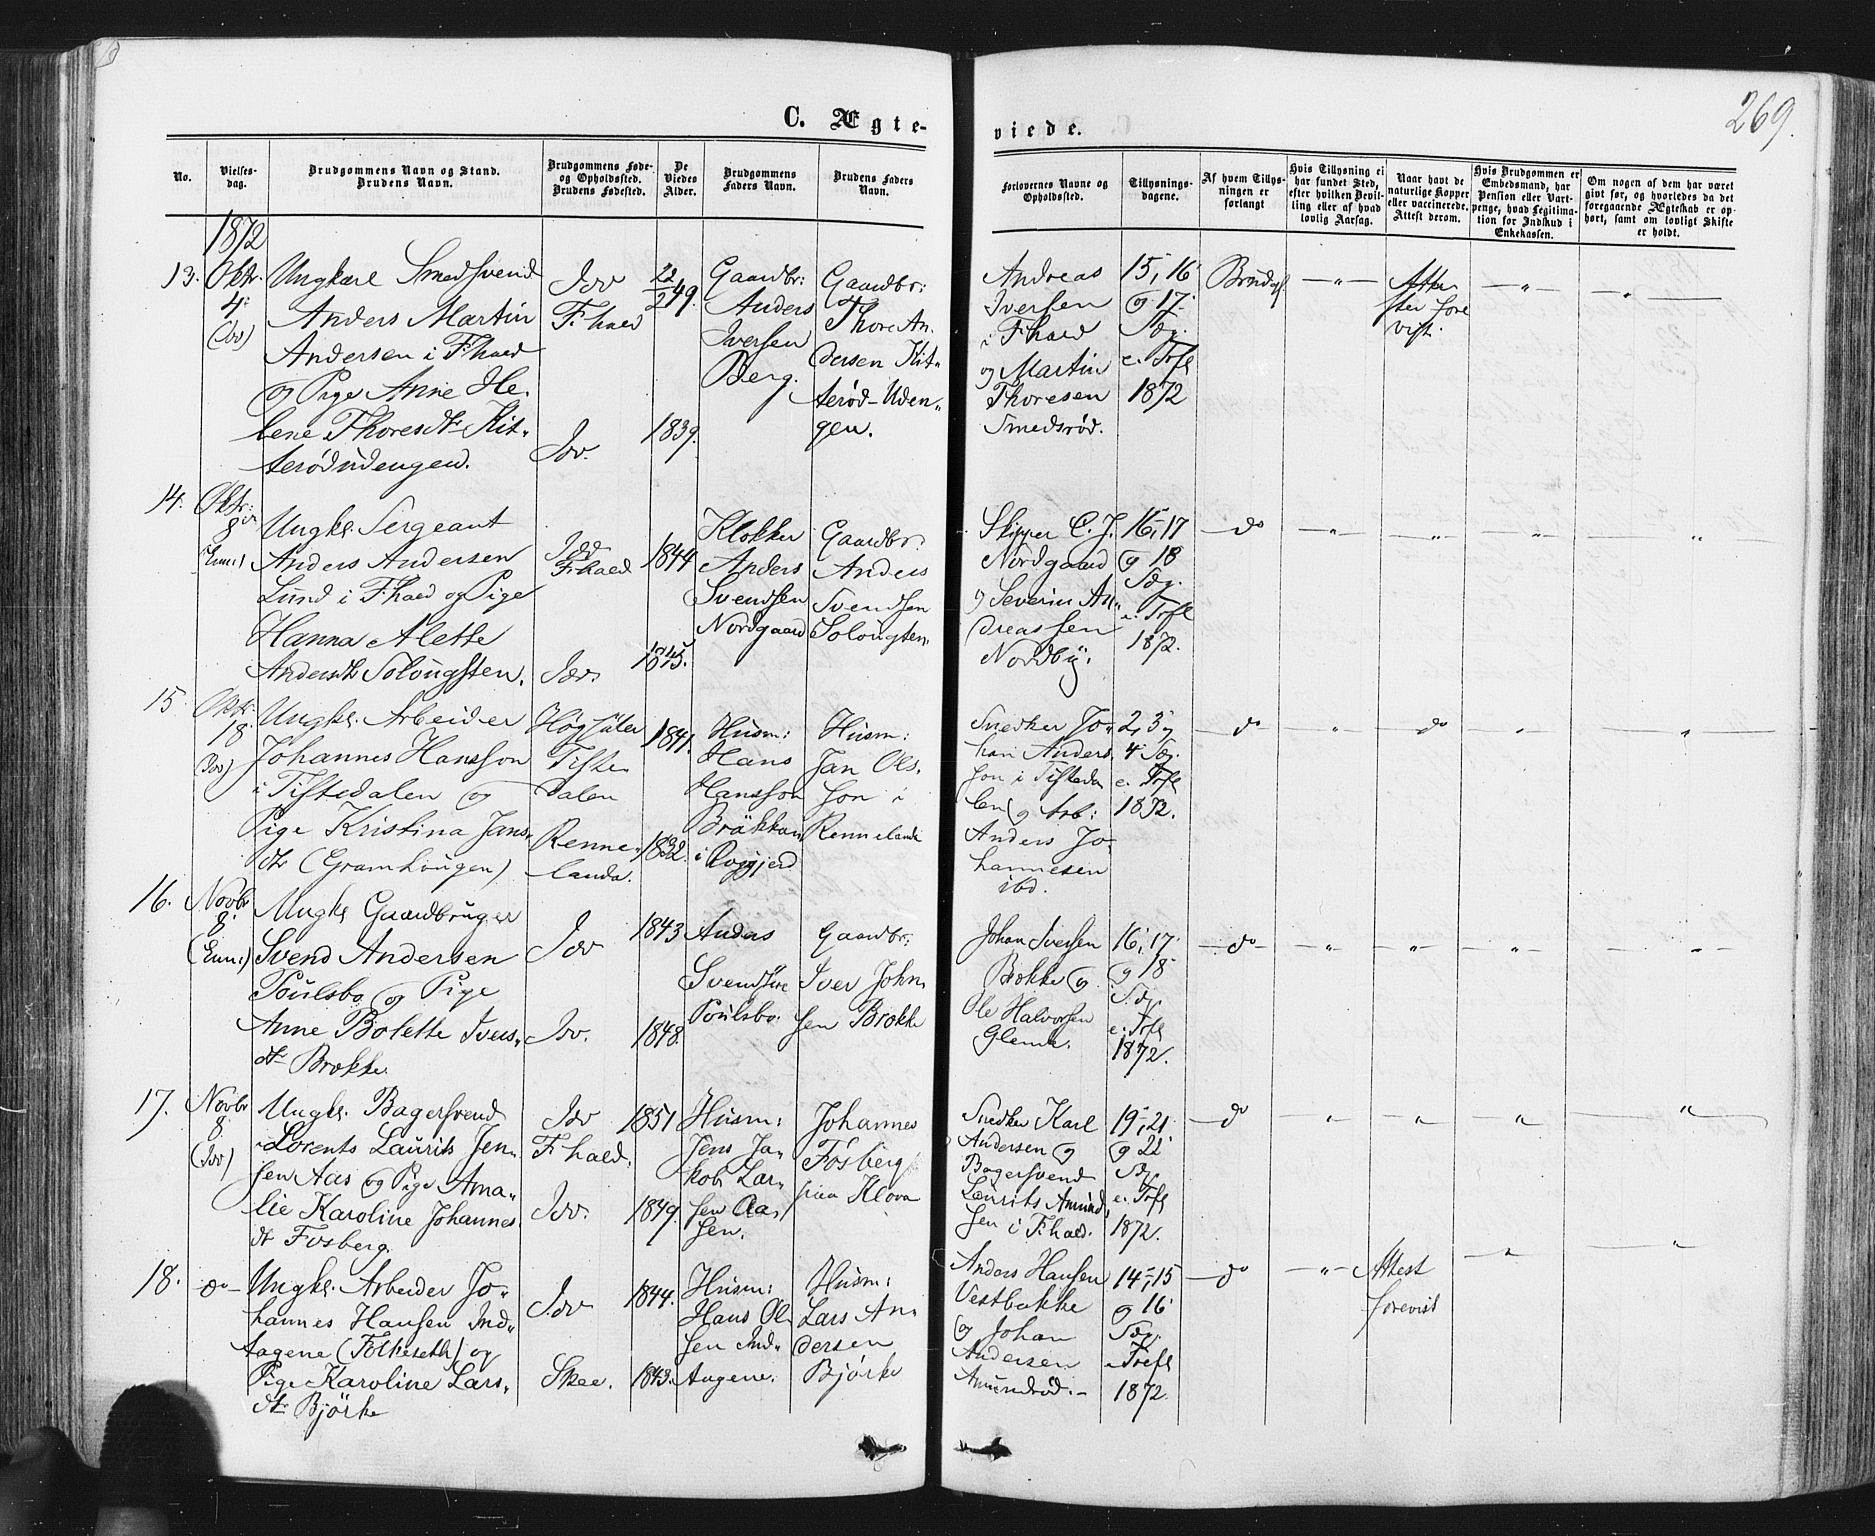 269.
C. Ægte-
viede.
No.
Vielses-
dag.
Brudgommens Navn og Stand.
Brudens Navn.
Brudgommens Føde-
og Opholdssted.
Brudens Fødested.
De
Viedes
Alder.
Brudgommens
Faders Navn.
Brudens Faders
Navn.
Forlovernes Navne og
Opholdssted.
Tillysnings-
dagene.
Af hvem Tillys-
ningen er
forlangt
Hvis Tillysning ei
har fundet Sted,
efter hvilken Bevil-
ling eller af hvad
lovlig Aarsag.
Naar havt de
naturlige Kopper
eller vaccinerede.
Attest derom.
Hvis Brudgommen er
Embedsmand, har
Pension eller Vart-
penge, hvad Legitima-
tion for Indskud i
Enkekassen.
Om nogen af dem har været
givt før, og hvorledes da det
foregaaende Ægteskab er op-
hørt, samt om lovligt Skifte
er holdt.
1872
13.
Oktr.
4.
(Idd)
Ungkarl Smedsvend
Anders Martin
Andersen i F:hald
og Pige Anne He-
lene Thoresdtr Kit-
terødudengen.
Idd
F:hald
Idd.
22/2 49.
1839.
Gaardbr:
Anders
Iversen
Berg.
Gaardbr:
Thore An-
dersen Kit-
terød-Uden-
gen.
Andreas
Iversen
i F:hald
og Martin
Thoresen
Smedsrød.
15, 16
og 17.
Sdg.
e. Trfl
1872
Brudgf
—"—
Atte-
ster fore
vist.
—"—
—"—
14.
Oktr:
8de
(Enn:)
Ungkl. Sergeant
Anders Andersen
Lund i F:hald og Pige
Hanna Alette
Andersdtr Solougsten.
Idd
F:hald
Idd.
1844
1845.
Klokker
Anders
Svendsen
Nordgaard
Gaardbr:
Anders
Svendsen
Solougsten.
Skipper C. J.
Nordgaard
og Severin An-
dreassen
Nordby.
16, 17
og 18
Sdg.
e. Trfl
1872.
—do
—"—
"
—"—
"
15.
Oktr.
18
(Idd)
Ungkl. Arbeider
Johannes Hansson
i Tistedalen og
Pige Kristina Jans-
dtr (Gramhougen)
Høgsäter
Tiste
dalen
Renne-
landa.
1841.
1832.
Husm:
Hans
Hansson
Bräkkan
i Roggjerd
Husm:
Jan Ols-
son i
Rennelanda
Snedker Jo-
han Anders-
son i Tisteda
len og Arb:
Anders Jo-
hannesen
ibd.
2, 3 og
4 Sdg.
e. Trfl
1872.
—do
"
do
"
"
16.
Novbr
8.
(Enn:)
Ungkl Gaardbruger
Svend Andersen
Poulsbo og Pige
Anne Bolette Ivers-
dtr Brække.
Idd
Idd.
1843
1848.
Anders
Svendsen
Poulsbo.
Gaardbr.
Iver John-
sen Brække
Johan Iversen
Brække og
Ole Halvorsen
Glenne.
16, 17
og 18
Sdg.
e. Trfl
1872.
—do—
"
"
"
"
17.
Novbr
8.
(Idd)
Ungkl. Bagersvend
Lorents Laurits Jen-
sen Aas og Pige Ama-
lie Karoline Johannes-
dtr Fosberg.
Idd
F:hald.
Idd.
1851
1849.
Husm:
Jens Ja-
kob Lar-
sen Aa-
sen.
Johannes
Fosberg
Klova
Snedker Karl
Andersen og
Bagersvend
Laurits Amund-
sen i F:hald.
19, 21
og 22
Sdg.
e. Trfl
1872.
—do
"
"
"
"
18.
do—
Ungkl. Arbeider Jo-
hannes Hansen Ind-
tagene (Folkeseth) og
Pige Karoline Lars-
dtr Björke
Idd
Skee.
1844.
1843.
Husm:
Hans Ol-
sen Ind-
tagene.
Husm:
Lars An-
dersen
Björke
Anders Hansen
Vestbakke
og Johan
Andersen
Amundrød.
14, 15
og 16
Sdg.
e. Trefl
1872.
—do
—"—
Attest
forevist
—"—
"